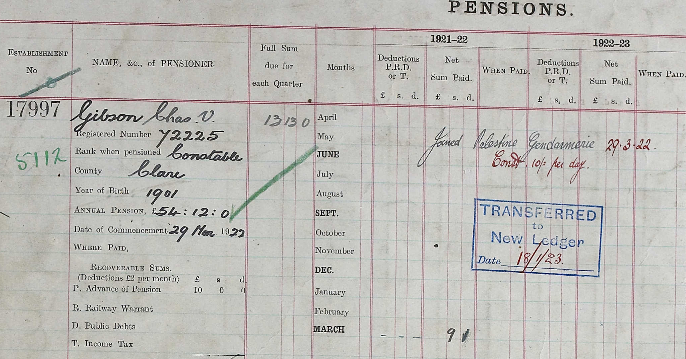 PENSIONS.
ESTABLISHMENT No
NAME, &c., OF PENSIONER
Full Sum due for each Quarter
Months
1921-22
Deductions P.R.D. or T.
Net Sum Paid.
WHEN PAID.
1922-23
Deductions P.R.D. or T.
Net Sum Paid.
WHEN PAID.
£ s. d. £ s. d. £ s. d. £ s. d.
17997 Gibson Chas. V. 13 13 0 April
Registered Number 72225 May Joined Palestine Gendarmerie 29.3.22.
5112 Rank when pensioned Constable JUNE Const. 10/- per day.
County Clare July
Year of Birth 1901 August
ANNUAL PENSION, £54:12:0 SEPT. TRANSFERRED
Date of Commencement 29 Mar 1922 October to
New Ledger
WHERE PAID, November
Date 18/1/23.
RECOVERABLE SUMS. DEC.
(Deductions £2 per month) £ s d
P. Advance of Pension 10 0 0 January
R. Railway Warrant February
D. Public Debts MARCH 9 1
T. Income Tax